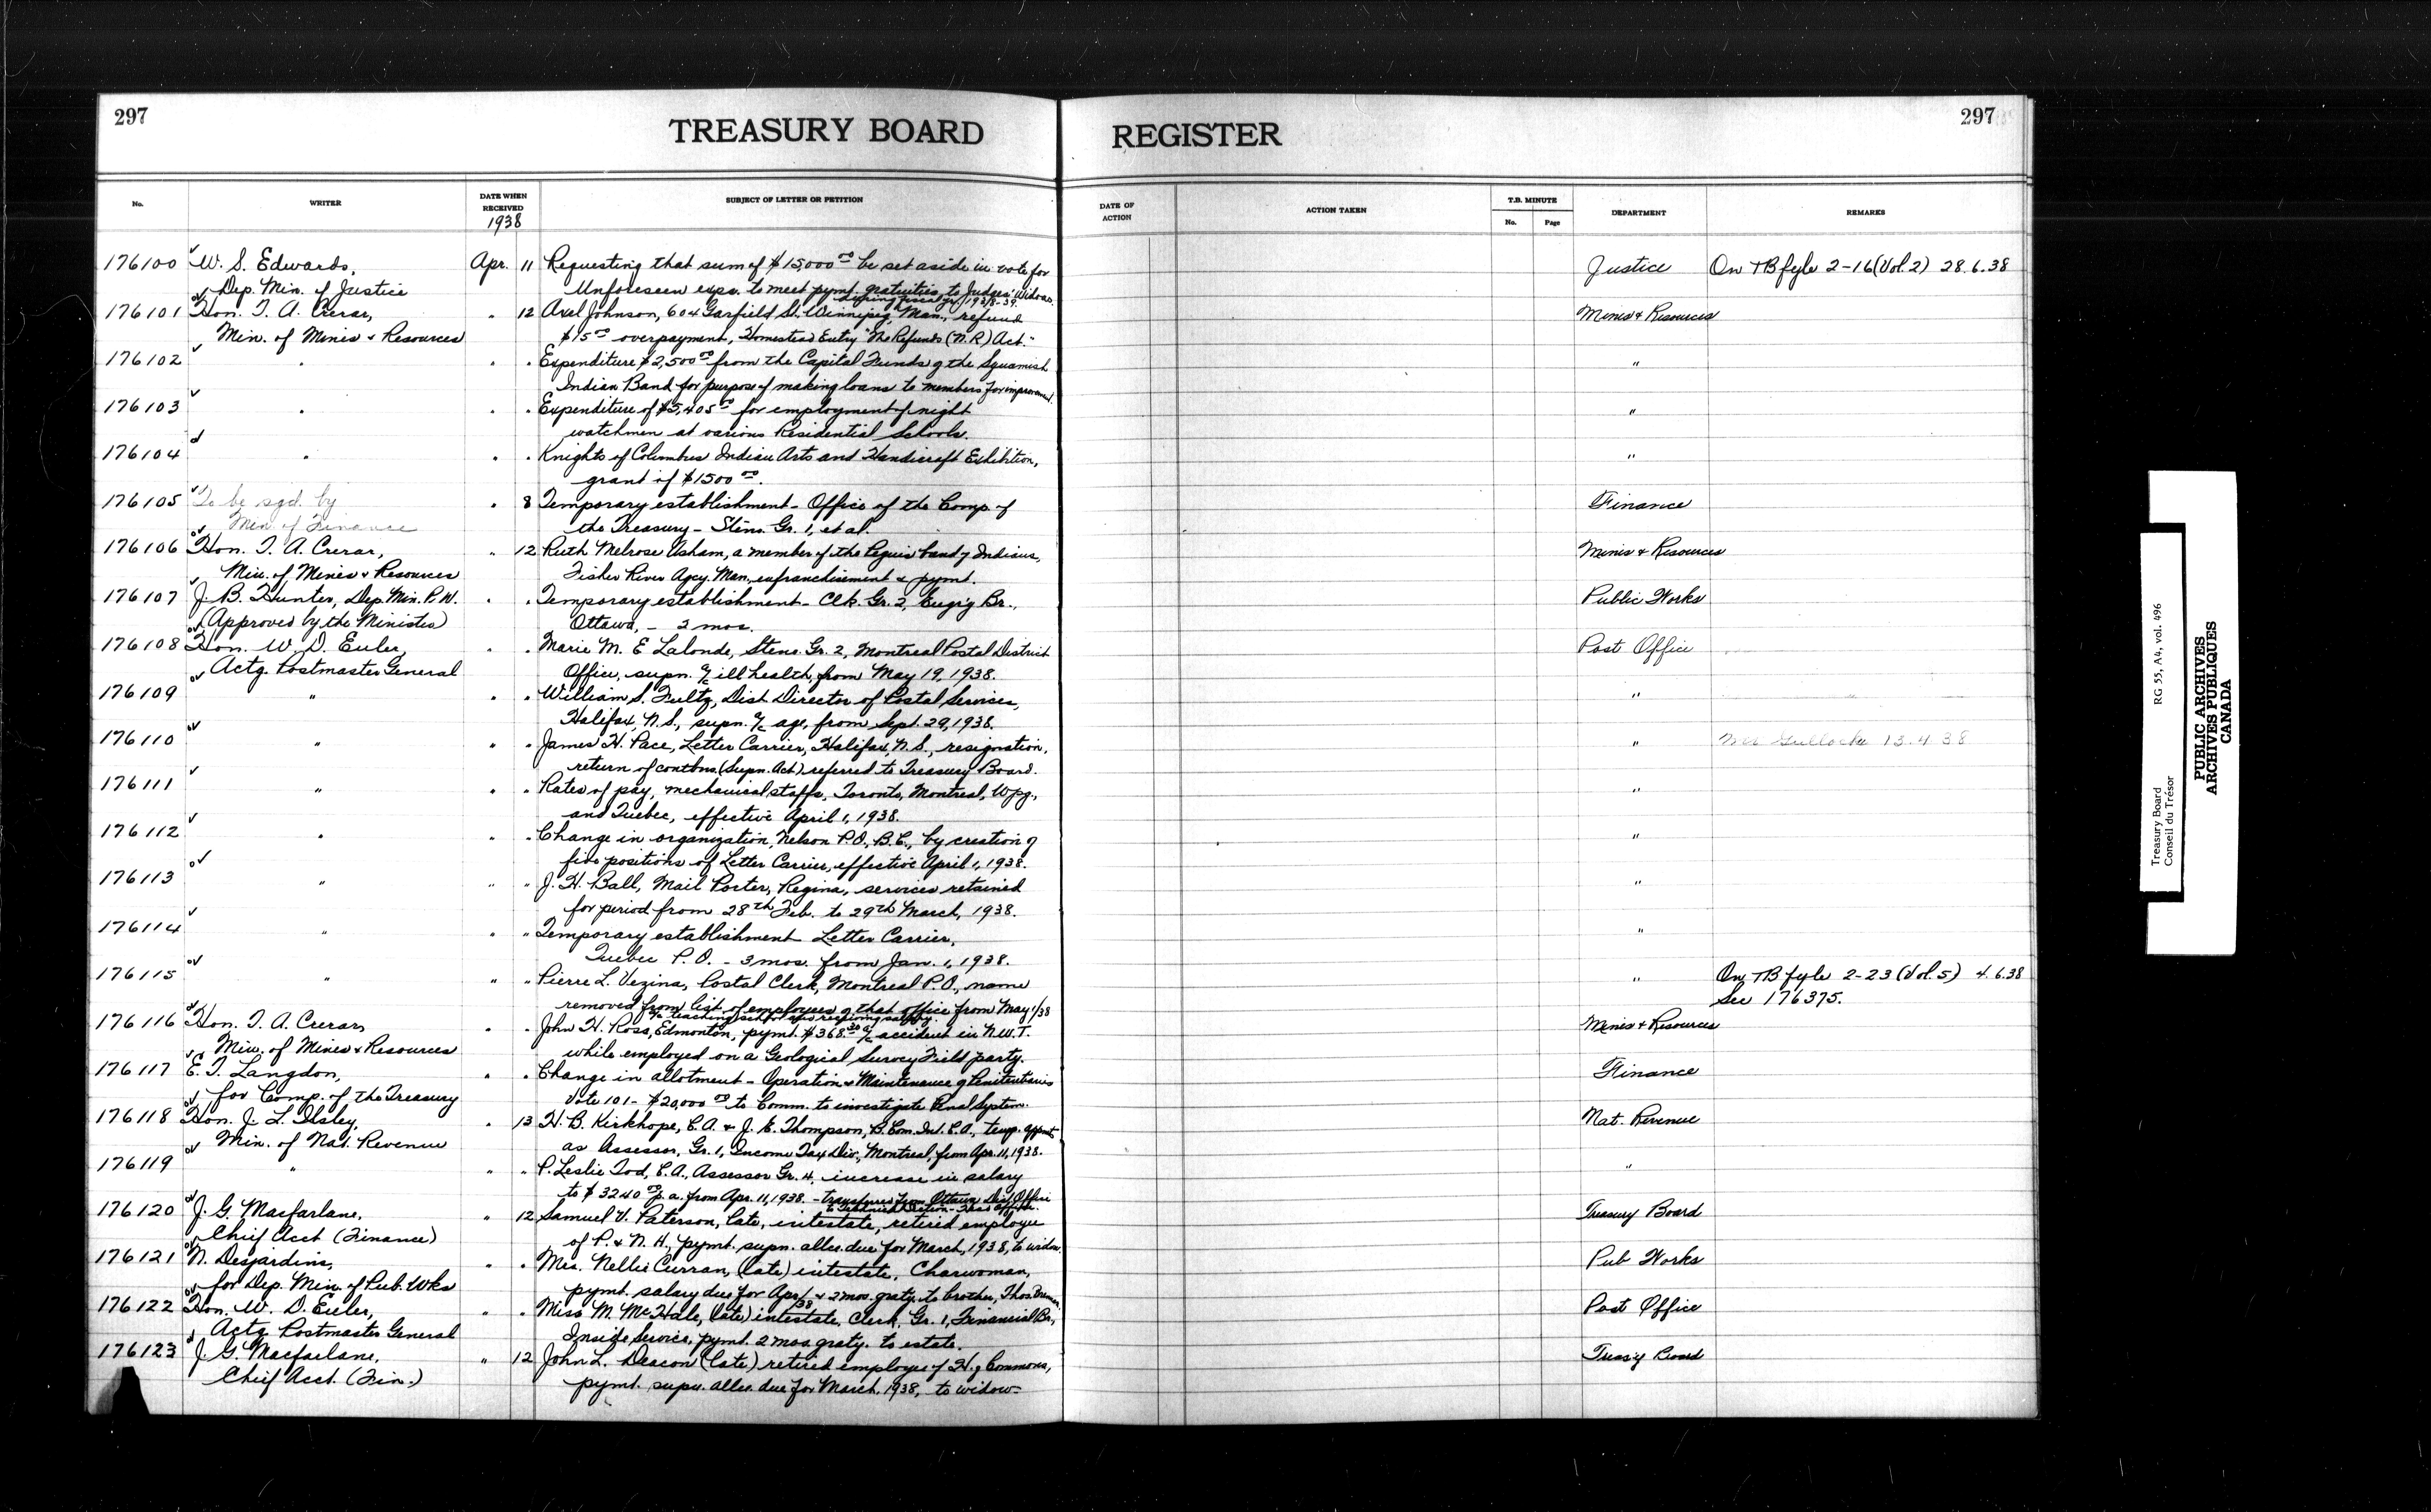 297
TREASURY BOARD REGISTER
297
No. WRITER DATE WHEN RECEIVED SUBJECT OF LETTER OR PETITION DATE OF ACTION ACTION TAKEN T.B. MINUTE No. Page DEPARTMENT REMARKS
1938
176100 W. S. Edwards, Apr. 11 Requesting that sum of $15,000 00 be set aside in vote for Justice On TB fyle 2-16 (Vol. 2) 28.6.38
Dep. Min. of Justice Unforeseen exps. to meet pymt. gratuities to Judges' Widows
during fiscal yr. 1938-39.
176101 Hon. T. A. Crerar, " 12 Axel Johnson, 604 Garfield St. Winnipeg, Man., refund Mines & Resources
Min. of Mines & Resources $15 00 overpayment, Homestead Entry "The Refunds (N.R) Act."
176102 " " " Expenditure $2,500 00 from the Capital Funds of the Squamish "
Indian Band for purpose of making loans to members for improvement.
176103 " " " Expenditure of $5,405 00 for employment of night "
watchmen at various Residential Schools.
176104 " " " Knights of Columbus Indian Arts and Handicraft Exhibition, "
grant of $1500 00.
176105 To be sgd. by " 8 Temporary establishment - Office of the Comp. of Finance
Min. of Finance the Treasury - Steno. Gr. 1, et al.
176106 Hon. T. A. Crerar, " 12 Ruth Melrose Asham, a member of the Peguis band of Indians, Mines & Resources
Min. of Mines & Resources Fisher River Agcy. Man., enfranchisement & pymt.
176107 J. B. Hunter, Dep. Min. P.W. " " Temporary establishment - Clk. Gr. 2, Eng'g Br., Public Works
(Approved by the Minister) Ottawa, - 2 mos.
176108 Hon. W. D. Euler, " " Marie M. E Lalonde, Steno. Gr. 2, Montreal Postal District Post Office
Actg. Postmaster General Office, supn. a/c ill health, from May 19, 1938.
176109 " " " William S. Fultz, Dist. Director of Postal Services, "
Halifax, N.S., supn. a/c age, from Sept. 29, 1938.
176110 " " " James H. Pace, Letter Carrier, Halifax, N.S., resignation, " 13.4.38
return of contbns. (Supn. Act) referred to Treasury Board.
176111 " " " Rates of pay, mechanical staffs, Toronto, Montreal, Wpg., "
and Quebec, effective April 1, 1938.
176112 " " " Change in organization, Nelson P.O., B.C., by creation of "
five positions of Letter Carrier, effective April 1, 1938.
176113 " " " J. H. Ball, Mail Porter, Regina, services retained "
for period from 28th Feb. to 29th March, 1938.
176114 " " " Temporary establishment Letter Carrier, "
Quebec P.O. - 3 mos. from Jan. 1, 1938.
176115 " " " Pierre L. Vezina, Postal Clerk, Montreal P.O., name " On TB fyle 2-23 (Vol. 5) 4.6.38
removed from list of employees of that office from May 1/38 See 176375.
a/c teaching school and receiving salary.
176116 Hon. T. A. Crerar, " " John H. Ross, Edmonton, pymt. $368.30 a/c accident in N.W.T. Mines & Resources
Min. of Mines & Resources while employed on a Geological Survey Field party.
176117 E. T. Langdon, " " Change in allotment - Operation & Maintenance of Penitentiaries Finance
for Comp. of the Treasury Vote 101 - $20,000 00 to Comm. to investigate Penal System.
176118 Hon. J. L. Ilsley, " 13 H. B. Kirkhope, C.A. & J. E. Thompson, B. Com. Int. C.A., temp. appmts Nat. Revenue
Min. of Nat. Revenue as Assessor, Gr. 1, Income Tax Div., Montreal, from Apr. 11, 1938.
176119 " " " P. Leslie Tod, C.A., Assessor Gr. 4, increase in salary "
to $3240 00 p.a. from Apr. 11, 1938. - transferred from Ottawa Dist. Office
to Technical Section - Head Office.
176120 J. G. Macfarlane, " 12 Samuel V. Paterson, late, intestate, retired employee Treasury Board
Chief Acct (Finance) of P. & N. H., pymt. supn. allce. due for March, 1938, to widow.
176121 N. Desjardins, " " Mrs. Nellie Curran, (late) intestate, Charwoman, Pub Works
for Dep. Min. of Pub. Wks pymt. salary due for Apr/38 & 2 mos. graty. to brother, Thos.
176122 Hon. W. D. Euler, " " Miss M. McHale, (late) intestate, Clerk, Gr. 1, Financial Br., Post Office
Actg. Postmaster General Inside Service, pymt. 2 mos. graty. to estate.
176123 J. G. Macfarlane, " 12 John L. Deacon (late) retired employee of H. of Commons, Treas'y Board
Chief Acct. (Fin.) pymt. supn. allce. due for March, 1938, to widow-
Treasury Board RG 55, A4, vol. 496
Conseil du Trésor
PUBLIC ARCHIVES
ARCHIVES PUBLIQUES
CANADA